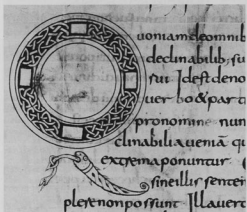 uoniam de omnib
declinabilib; su
sui Idest deno
uer bo & par t
pronomine nun
clinabilia ueniā qı
extrema ponuntur
sineillis sentei
plere non possunt Illa uero